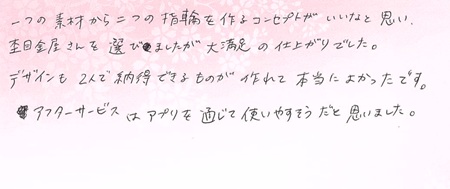 一つの素材から二つの指輪を作るコンセプトがいいなと思い、
杢目金屋さんを選びましたが大満足の仕上がりでした。
デザインも2人で納得できるものが作れて本当によかったです。
アフターサービスはアプリを通じて使いやすそうだと思いました。